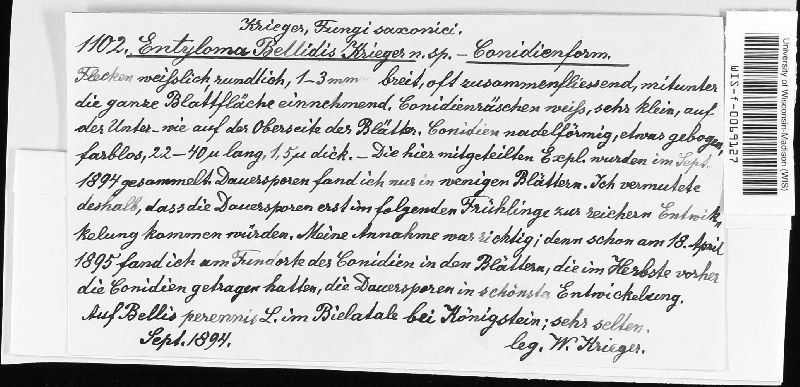 Krieger, Fungi saxonici.
1102. Entyloma Bellidis Krieger n. sp. – Conidienform.
Flecken weisslich, rundlich, 1–3 mm breit, oft zusammenfliessend, mitunter
die ganze Blattfläche einnehmend. Conidienräschen weiss, sehr klein, auf
der Unter- wie auf der Oberseite der Blätter. Conidien nadelförmig, etwas gebogen,
farblos, 22–40 µ lang, 1,5 µ dick. – Die hier mitgeteilten Expl. wurden im Sept.
1894 gesammelt. Dauersporen fand ich nur in wenigen Blättern. Ich vermutete
deshalb, dass die Dauersporen erst im folgenden Frühlinge zur reichern Entwik-
kelung kommen würden. Meine Annahme war richtig; denn schon am 18. April
1895 fand ich am Fundorte des Conidien in den Blättern, die im Herbste vorher
die Conidien getragen hatten, die Dauersporen in schönster Entwickelung.
Auf Bellis perennis L. im Bielatale bei Königstein; sehr selten.
Sept. 1894. leg. W. Krieger.
University of Wisconsin-Madison (WIS)
WIS-f-0069127